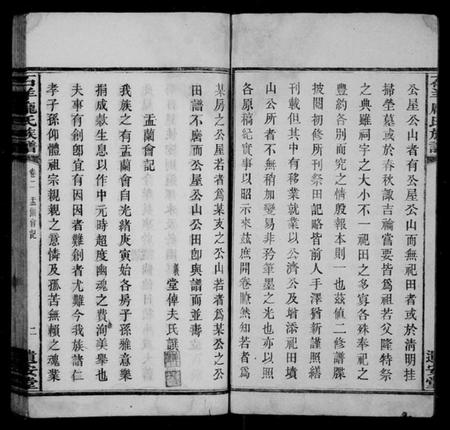 公屋公山者有公屋公山而無祀田者或於清明挂
掃塋墓或於春秋諏吉禴嘗要皆為祖若父隆特祭
之典雖祠宇之大小不一祀田之多寡各殊奉祀之
豐約各別而究之情殷報本則一也茲值二修譜牒
披閱初修所刊祭田記略皆前人手澤猶新謹照繕
刊載但其中有移業就業以公濟公及增添祀田墳
山公所者不無稍加變易非矜筆墨之光也亦以照
各原稿紀實事以昭示來茲庶開卷瞭然知若者為
某房之公屋若者為某支之公山若者為某公之公
田譜不廣而公屋公山公田卽與譜而並壽
義堂俾夫氏譔
盂蘭會記
我族之有盂蘭會自光緒庚寅始各房子孫雅意樂
捐成歉生息以作中元時超度幽魂之費洵美舉也
夫事有創卽宜有因因者難創者尤難今我族諸仁
孝子孫仰體祖宗親親之意憐及孤苦無賴之魂業
石羊龐氏族譜
卷二 盂蘭會記
二
遺安堂